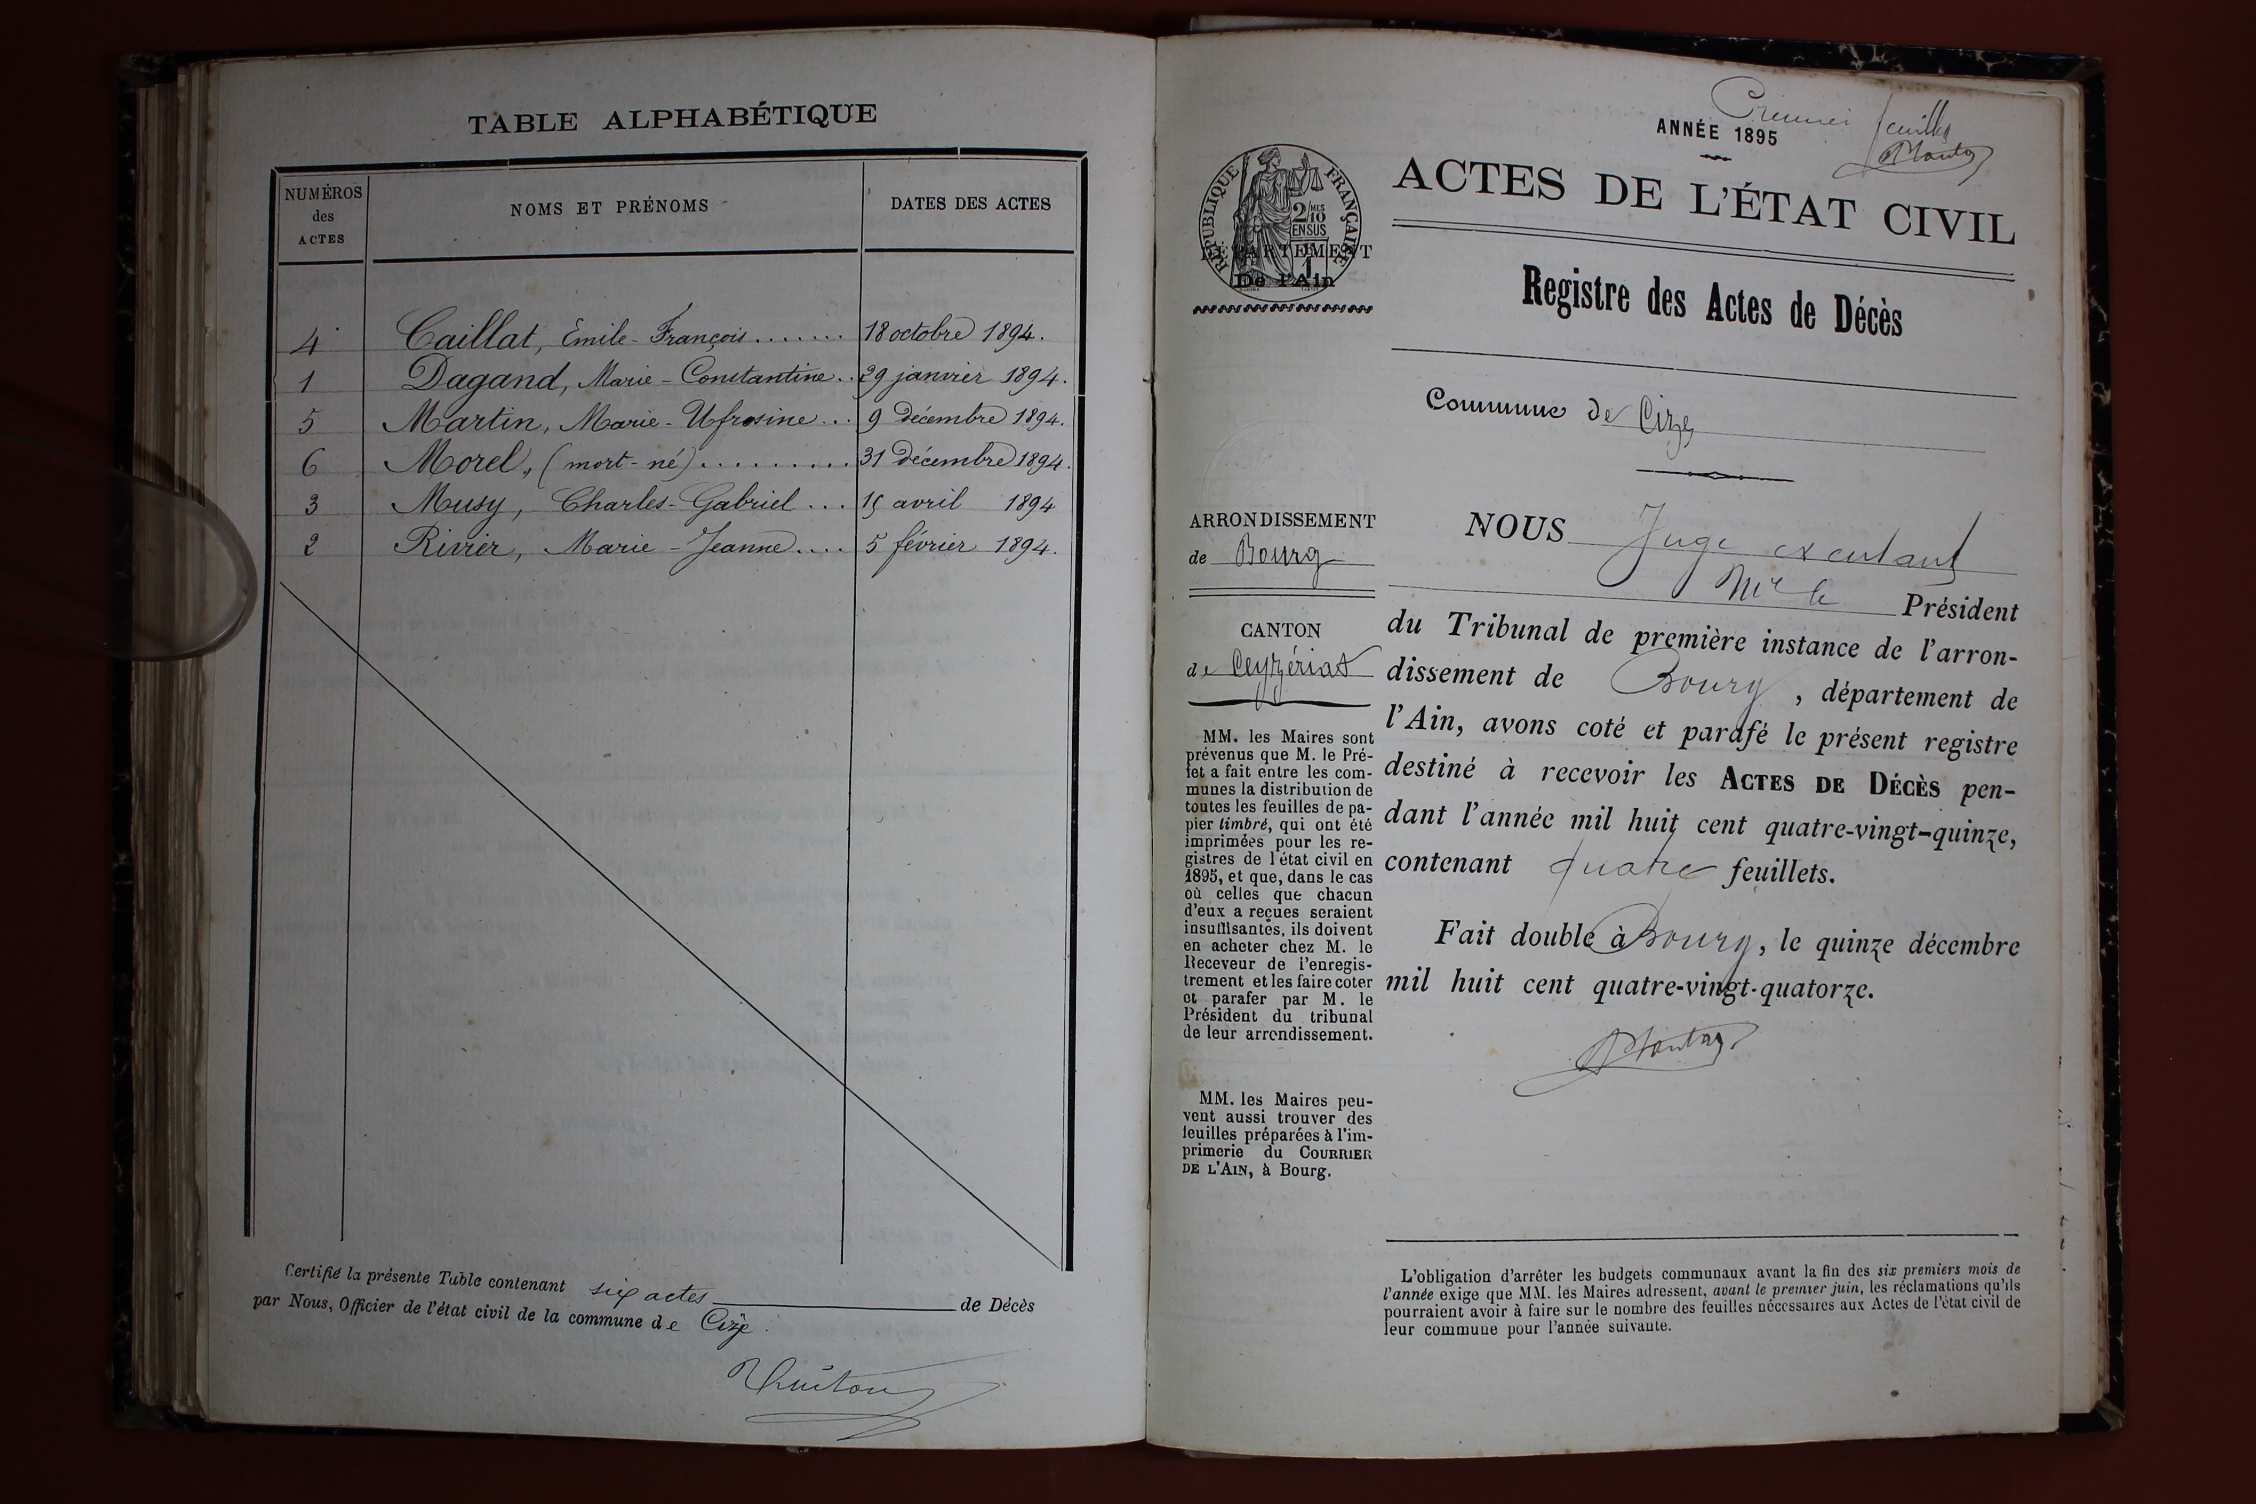 TABLE ALPHABÉTIQUE
NUMÉROS
des
ACTES
NOMS ET PRÉNOMS
DATES DES ACTES
4 Caillat, Emile-François ....... 18 octobre 1894.
1 Dagand, Marie-Constantine .. 29 janvier 1894.
5 Martin, Marie-Ufrosine ... 9 décembre 1894.
6 Morel, (mort-né) .......... 31 décembre 1894.
3 Musy, Charles-Gabriel ... 15 avril 1894
2 Rivier, Marie-Jeanne .... 5 février 1894.
Certifié la présente Table contenant six actes de Décès
par Nous, Officier de l'état civil de la commune de Cize.
Premier feuillet
ANNÉE 1895
ACTES DE L'ÉTAT CIVIL
RÉPUBLIQUE FRANÇAISE
2/10
EN SUS
DÉPARTEMENT
De l'Ain
Registre des Actes de Décès
Commune de Cize
ARRONDISSEMENT
de Bourg
CANTON
de Ceyzériat
MM. les Maires sont
prévenus que M. le Pré-
fet a fait entre les com-
munes la distribution de
toutes les feuilles de pa-
pier timbré, qui ont été
imprimées pour les re-
gistres de l'état civil en
1895, et que, dans le cas
où celles que chacun
d'eux a reçues seraient
insuffisantes, ils doivent
en acheter chez M. le
Receveur de l'enregis-
trement et les faire coter
et parafer par M. le
Président du tribunal
de leur arrondissement.
MM. les Maires peu-
vent aussi trouver des
feuilles préparées à l'im-
primerie du COURRIER
DE L'AIN, à Bourg.
NOUS Juge
Président
du Tribunal de première instance de l'arron-
dissement de Bourg, département de
l'Ain, avons coté et parafé le présent registre
destiné à recevoir les ACTES DE DÉCÈS pen-
dant l'année mil huit cent quatre-vingt-quinze,
contenant quatre feuillets.
Fait double à Bourg, le quinze décembre
mil huit cent quatre-vingt-quatorze.
L'obligation d'arrêter les budgets communaux avant la fin des six premiers mois de
l'année exige que MM. les Maires adressent, avant le premier juin, les réclamations qu'ils
pourraient avoir à faire sur le nombre des feuilles nécessaires aux Actes de l'état civil de
leur commune pour l'année suivante.